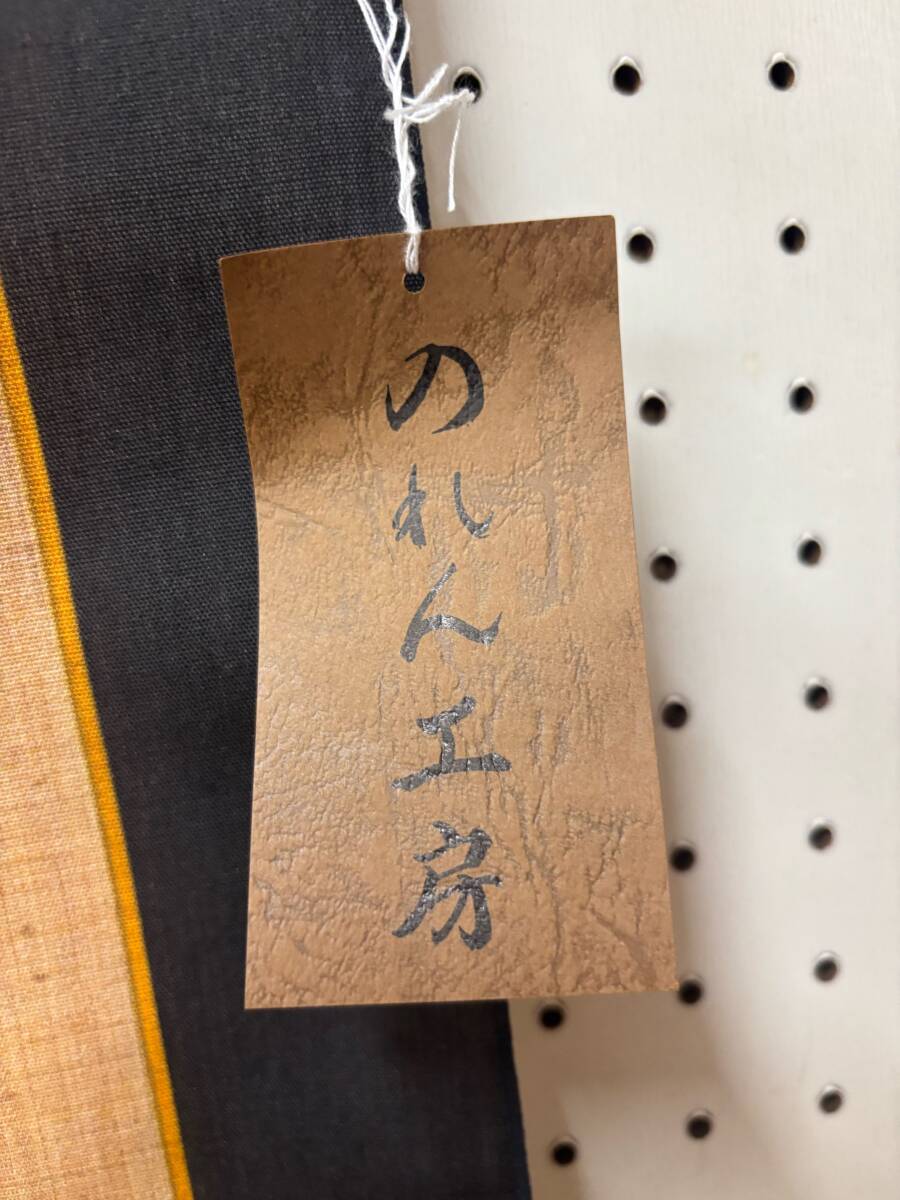 のれん工房